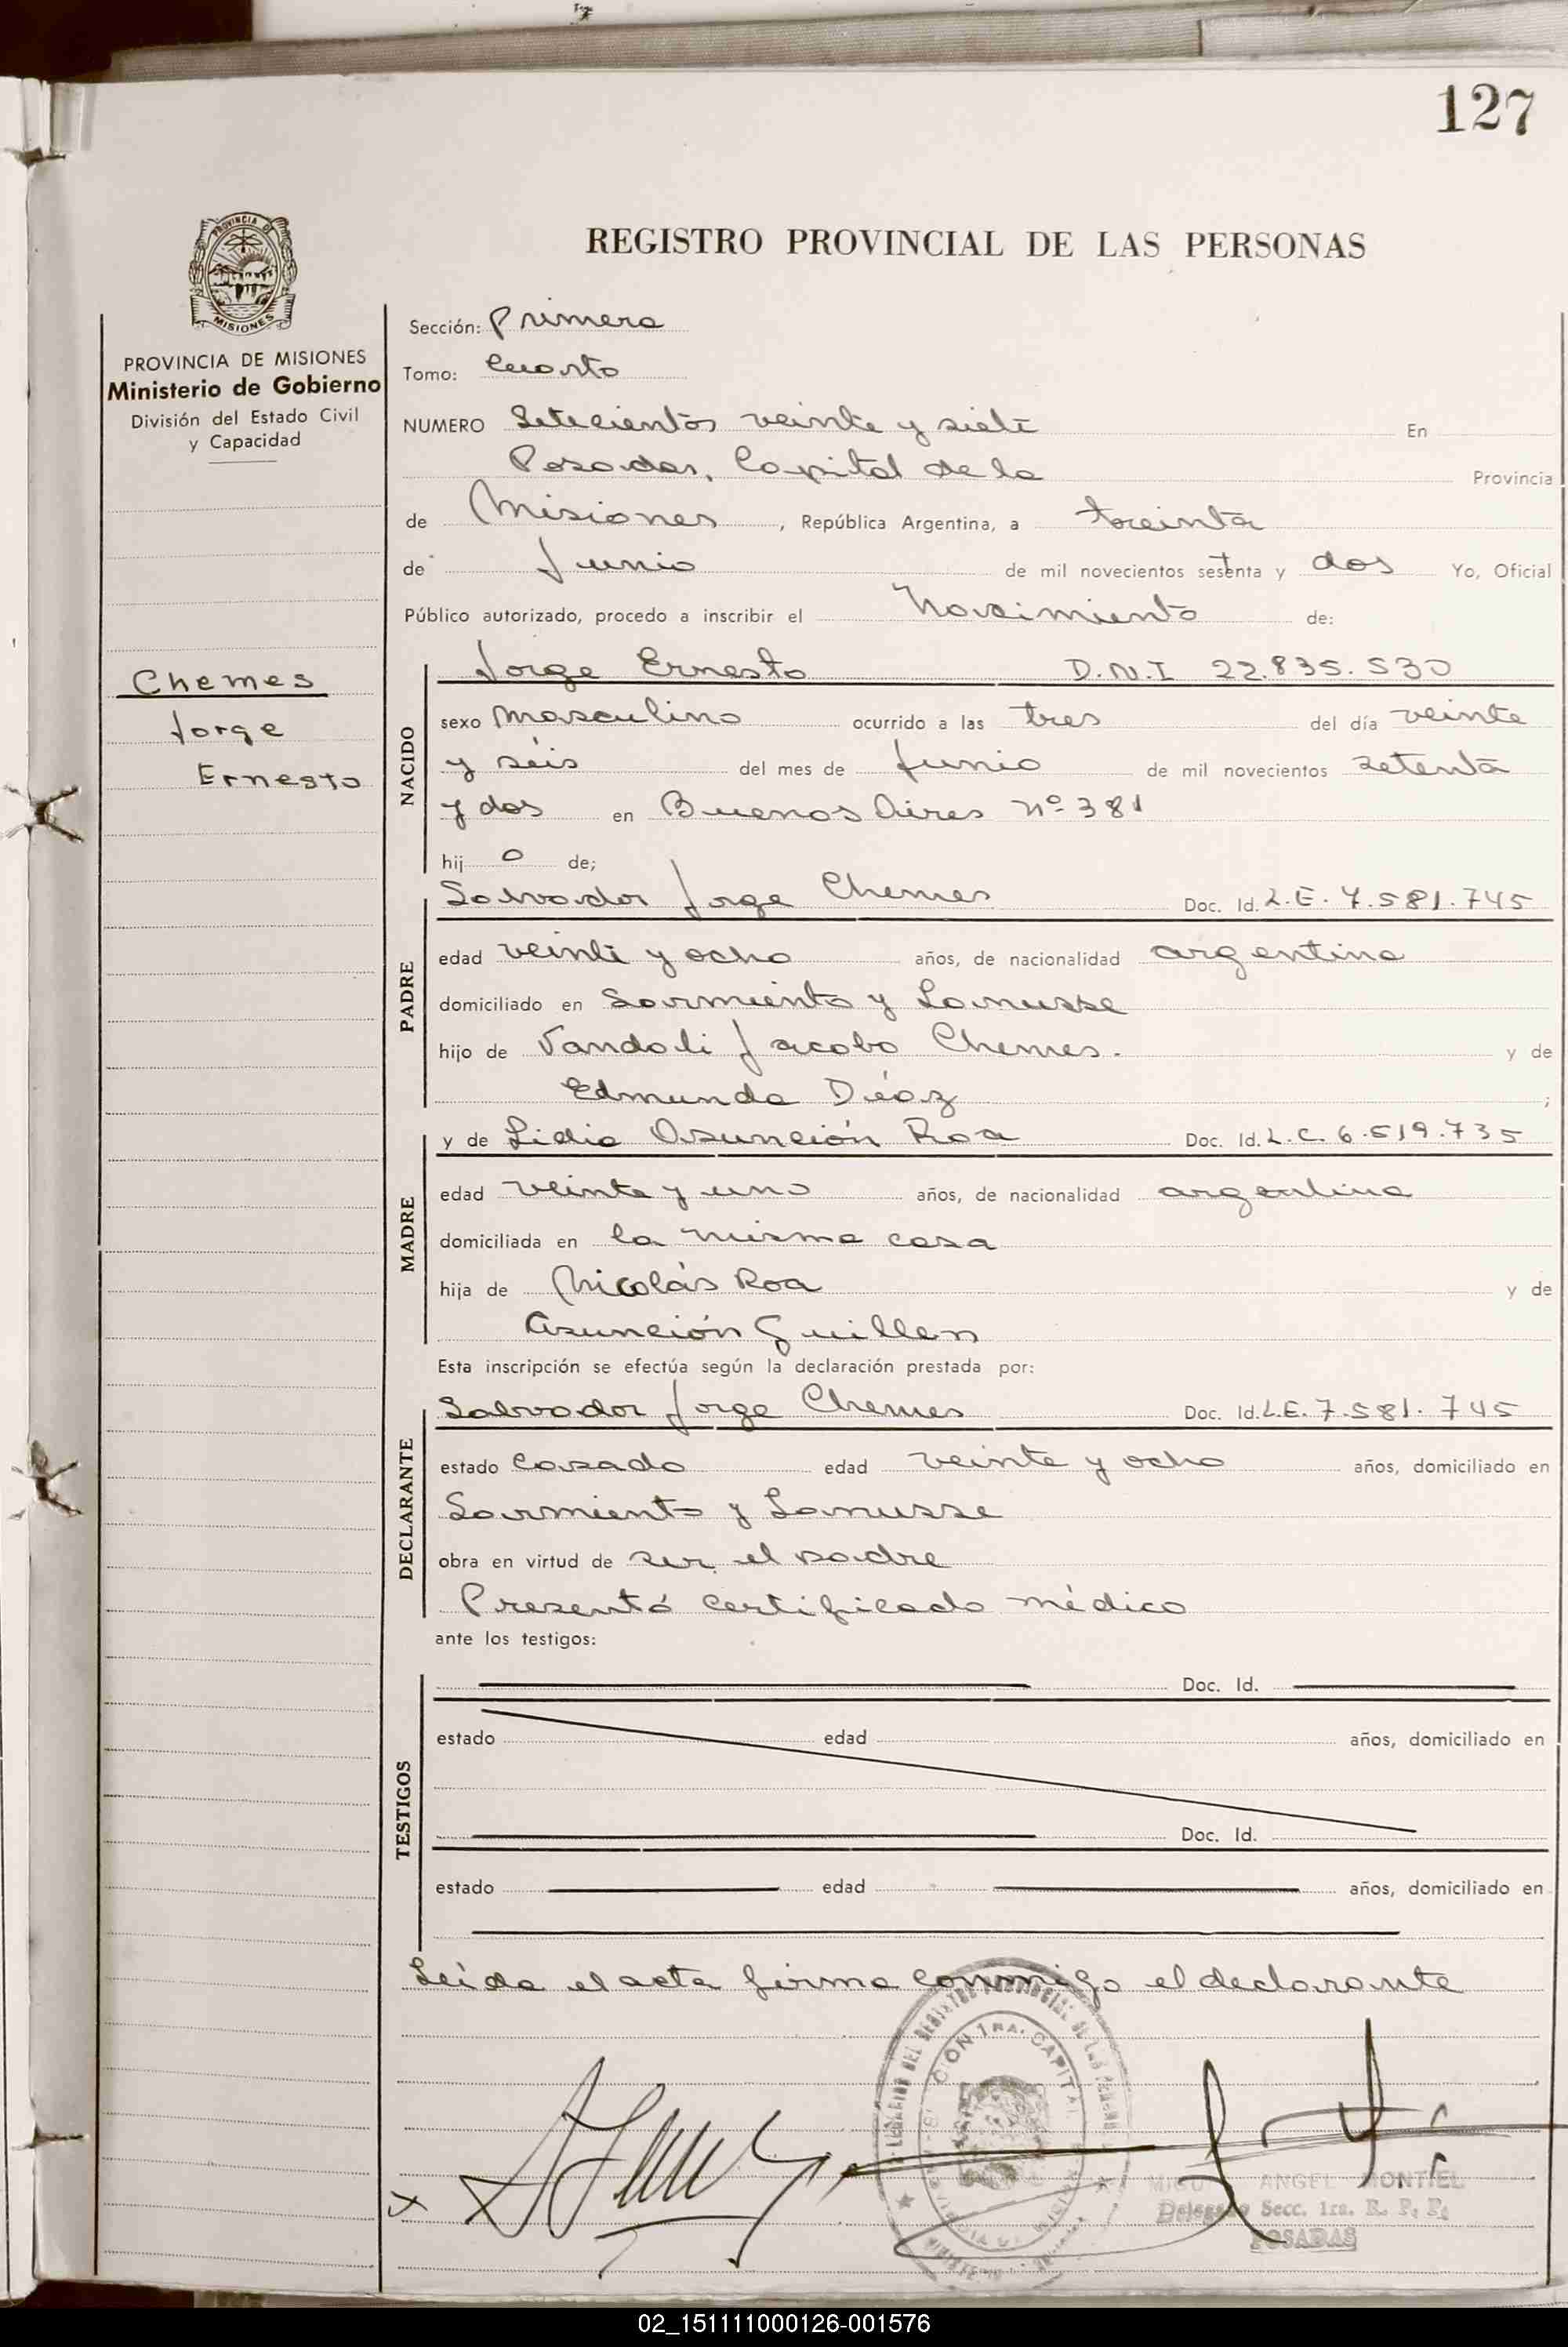 127
REGISTRO PROVINCIAL DE LAS PERSONAS
PROVINCIA DE
MISIONES
PROVINCIA DE MISIONES
Ministerio de Gobierno
División del Estado Civil
y Capacidad
Chemes
Jorge
Ernesto
Sección: Primera
Tomo: Cuarto
NUMERO Setecientos veinte y siete En
Posadas, Capital de la Provincia
de Misiones, República Argentina, a treinta
de Junio de mil novecientos setenta y dos Yo, Oficial
Público autorizado, procedo a inscribir el Nacimiento de:
NACIDO
Jorge Ernesto D.N.I 22.835.530
sexo masculino ocurrido a las tres del día veinte
y séis del mes de Junio de mil novecientos setenta
y dos en Buenos Aires nº 381
hij o de;
PADRE
Salvador Jorge Chemes Doc. Id. L.E. 7.581.745
edad veinte y ocho años, de nacionalidad argentina
domiciliado en Sarmiento y Lanusse
hijo de Vandoli Jacobo Chemes. y de
Edmunda Díaz ;
MADRE
y de Lidia Asunción Roa Doc. Id. L.C. 6.519.735
edad veinte y uno años, de nacionalidad argentina
domiciliada en la misma casa
hija de Nicolás Roa y de
Asunción Guillen
Esta inscripción se efectúa según la declaración prestada por:
DECLARANTE
Salvador Jorge Chemes Doc. Id. L.E. 7.581.745
estado casado edad veinte y ocho años, domiciliado en
Sarmiento y Lanusse
obra en virtud de ser el padre
Presentó certificado médico
ante los testigos:
TESTIGOS
Doc. Id.
estado edad años, domiciliado en
Doc. Id.
estado edad años, domiciliado en
Leída el acta firma conmigo el declarante
ANGEL MONTIEL
Delegado Secc. 1ra. R. P. P.
POSADAS
02_151111000126-001576